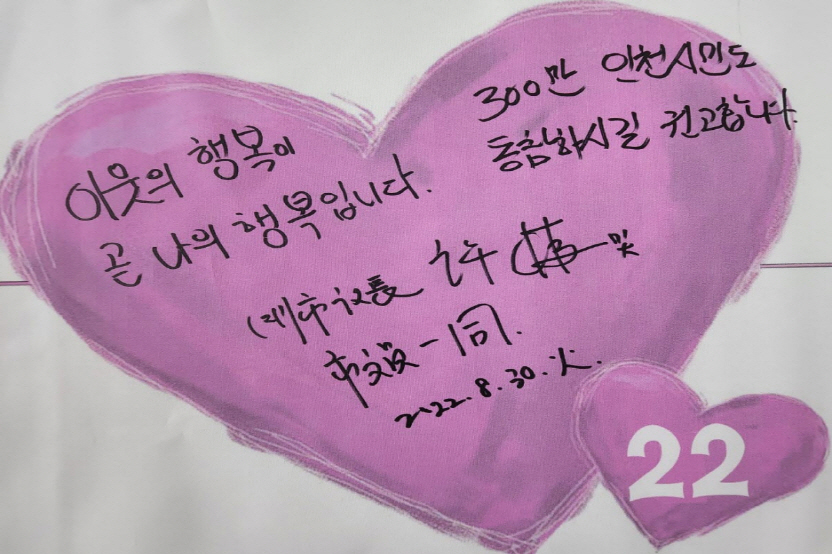 이웃의 행복이
곧 나의 행복입니다.
300만 인천시민도
동참하시길 권고합니다.
許 및
一同.
2022.8.30.火.
22